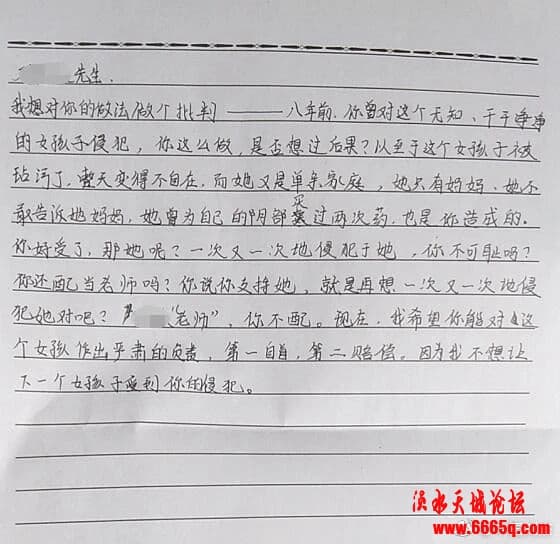 先生.
我想对你的做法做个批判——八年前.你曾对这个无知、干干净净
的女孩子侵犯，你这么做，是否想过后果？以至于这个女孩子被
玷污了，整天变得不自在，而她又是单亲家庭，她只有妈妈，她不
敢告诉她妈妈，她曾为自己的阴部买过两次药，也是你造成的。
你好受了，那她呢？一次又一次地侵犯于她，你不可耻吗？
你还配当老师吗？你说你支持她，就是再想一次又一次地侵
犯她对吧？"老师"，你不配。现在，我希望你能对这
个女孩作出严肃的负责，第一自首，第二赔偿。因为我不想让
下一个女孩子受到你的侵犯。
淡水天城论坛
www.6665q.com